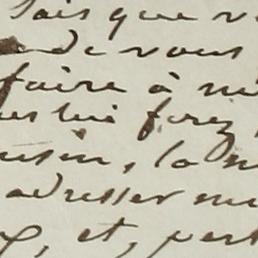 sais que v
de vous
faire à m
us lui ferez,
usin, la m
adresser m
, et, part